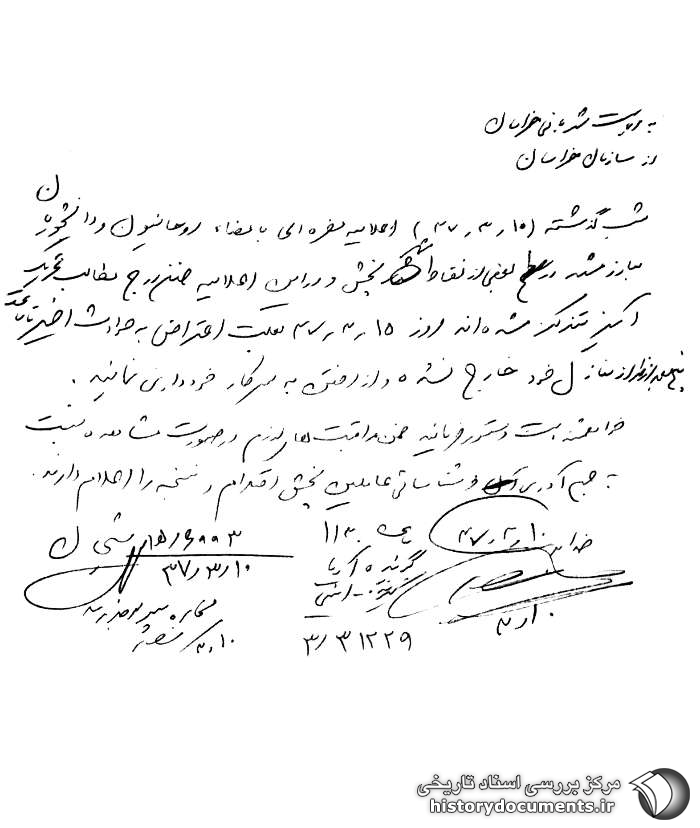 به ریاست شهربانی خراسان
از سازمان خراسان
شب گذشته (۴۷٫۳٫۱۵) اعلامیه مضره‌ای بامضاء روحانیون و دانشجویان
مبارز مشهد در سطح بعضی از نقاط شهر پخش و در این اعلامیه ضمن درج مطالب تحریک
آمیز متذکر شده‌اند روز ۱۵ ر ۳ ر ۴۷ بعلت اعتراض به حوادث اخیر تا ساعت
پنج بعدازظهر از منازل خود خارج نشده و از رفتن به سر کار خودداری نمائید.
خواهشمند است دستور فرمایید ضمن مراقبت‌های لازم در صورت مشاهده نسبت
به جمع‌آوری و شناسائی عاملین پخش اقدام و نتیجه را اعلام دارند.
۴۷٫۳٫۱۰
۱۱۳۰
گیرنده آریا
۳٫۳۱۲۲۹
۳۷٫۳٫۱۰
۳٫۱۰
مرکز بررسی اسناد تاریخی
historydocuments.ir